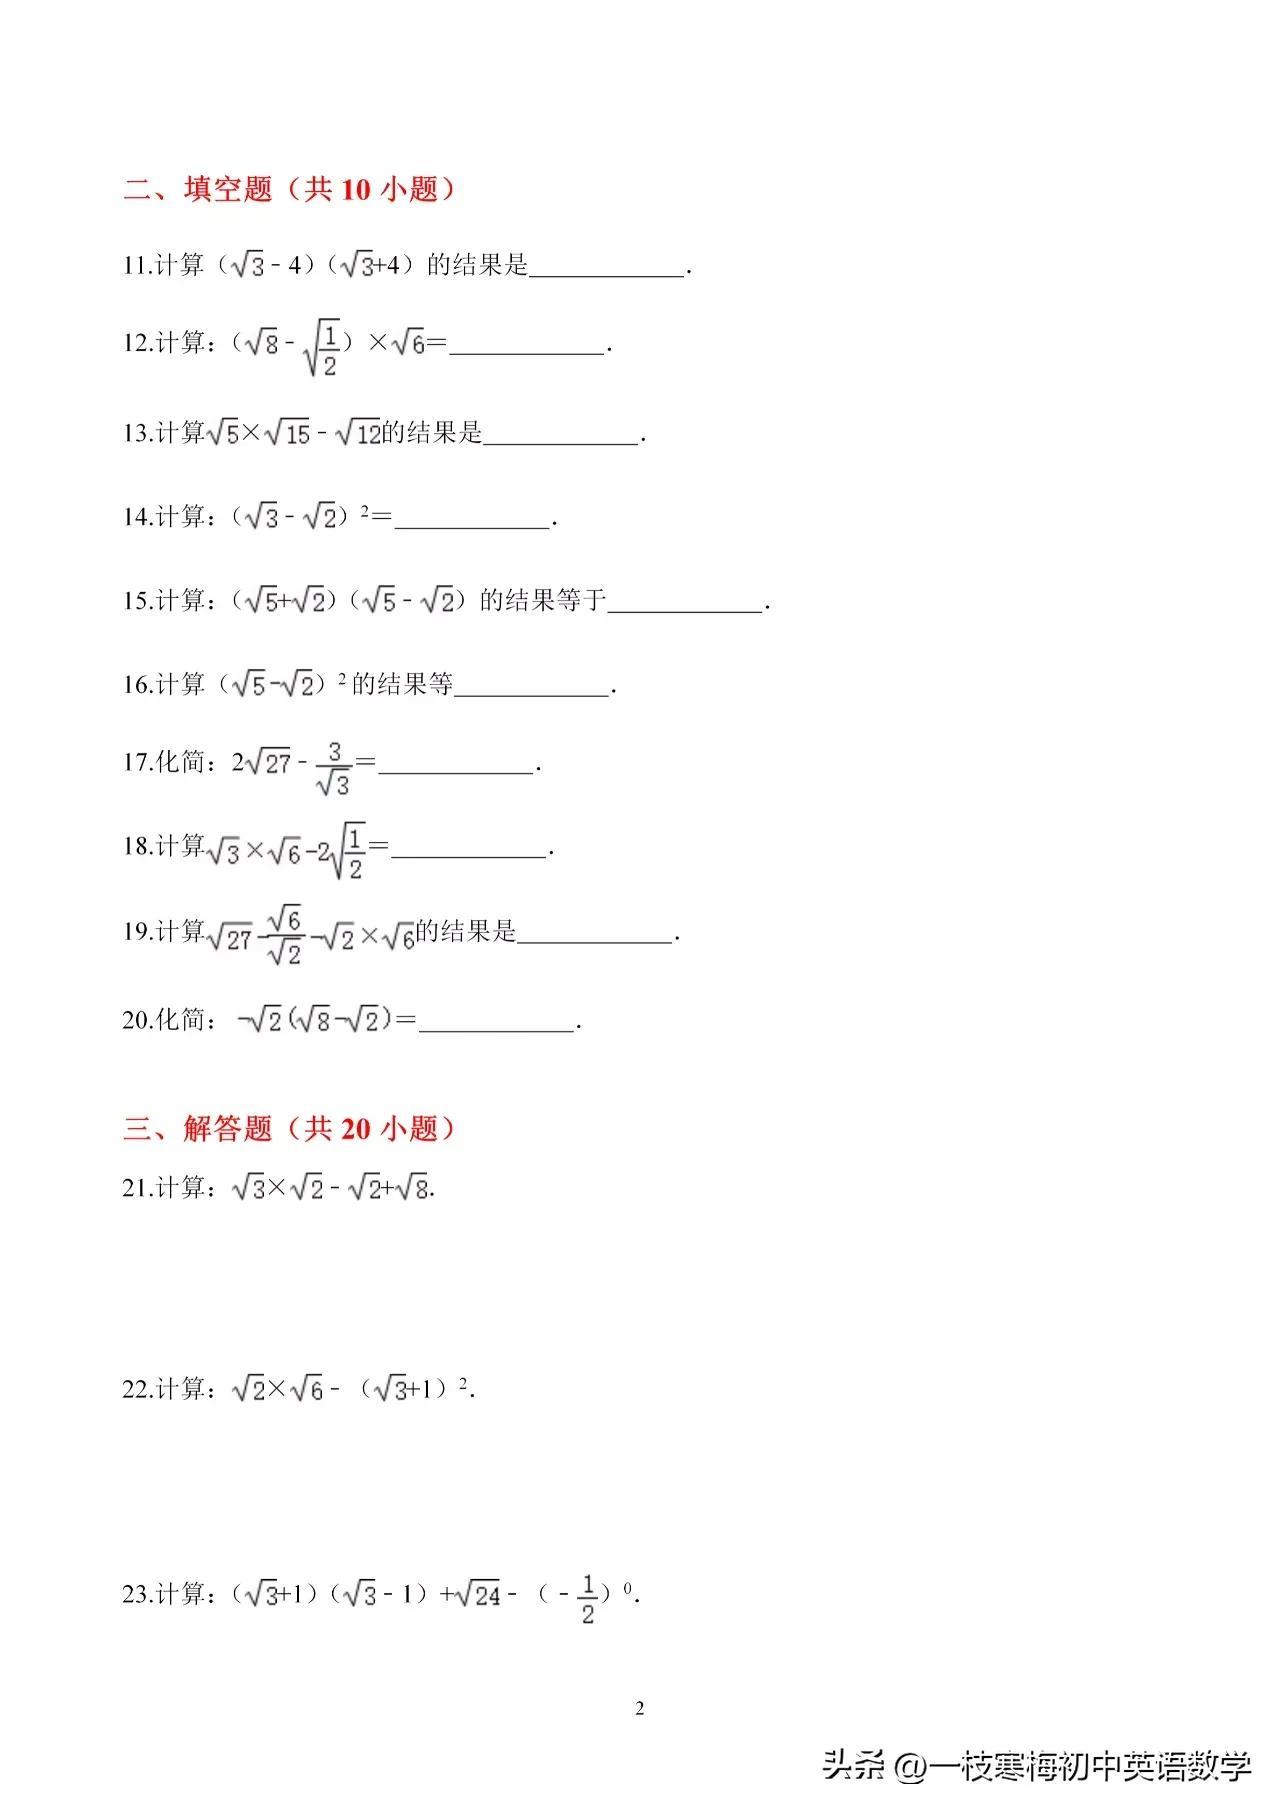 二、填空题（共 10 小题）
11.计算（√3﹣4）（√3+4）的结果是____________．
12.计算：（√8﹣√(1/2)）×√6＝____________．
13.计算√5×√15﹣√12的结果是____________．
14.计算：（√3﹣√2）²＝____________．
15.计算：（√5+√2）（√5﹣√2）的结果等于____________．
16.计算（√5-√2）² 的结果等____________．
17.化简：2√27﹣3/√3＝____________．
18.计算√3×√6-2√(1/2)＝____________．
19.计算√27-√6/√2-√2×√6的结果是____________．
20.化简：-√2(√8-√2)＝____________．
三、解答题（共 20 小题）
21.计算：√3×√2﹣√2+√8.
22.计算：√2×√6﹣（√3+1）²．
23.计算：（√3+1）（√3﹣1）+√24﹣（﹣1/2）⁰．
2
头条 @一枝寒梅初中英语数学